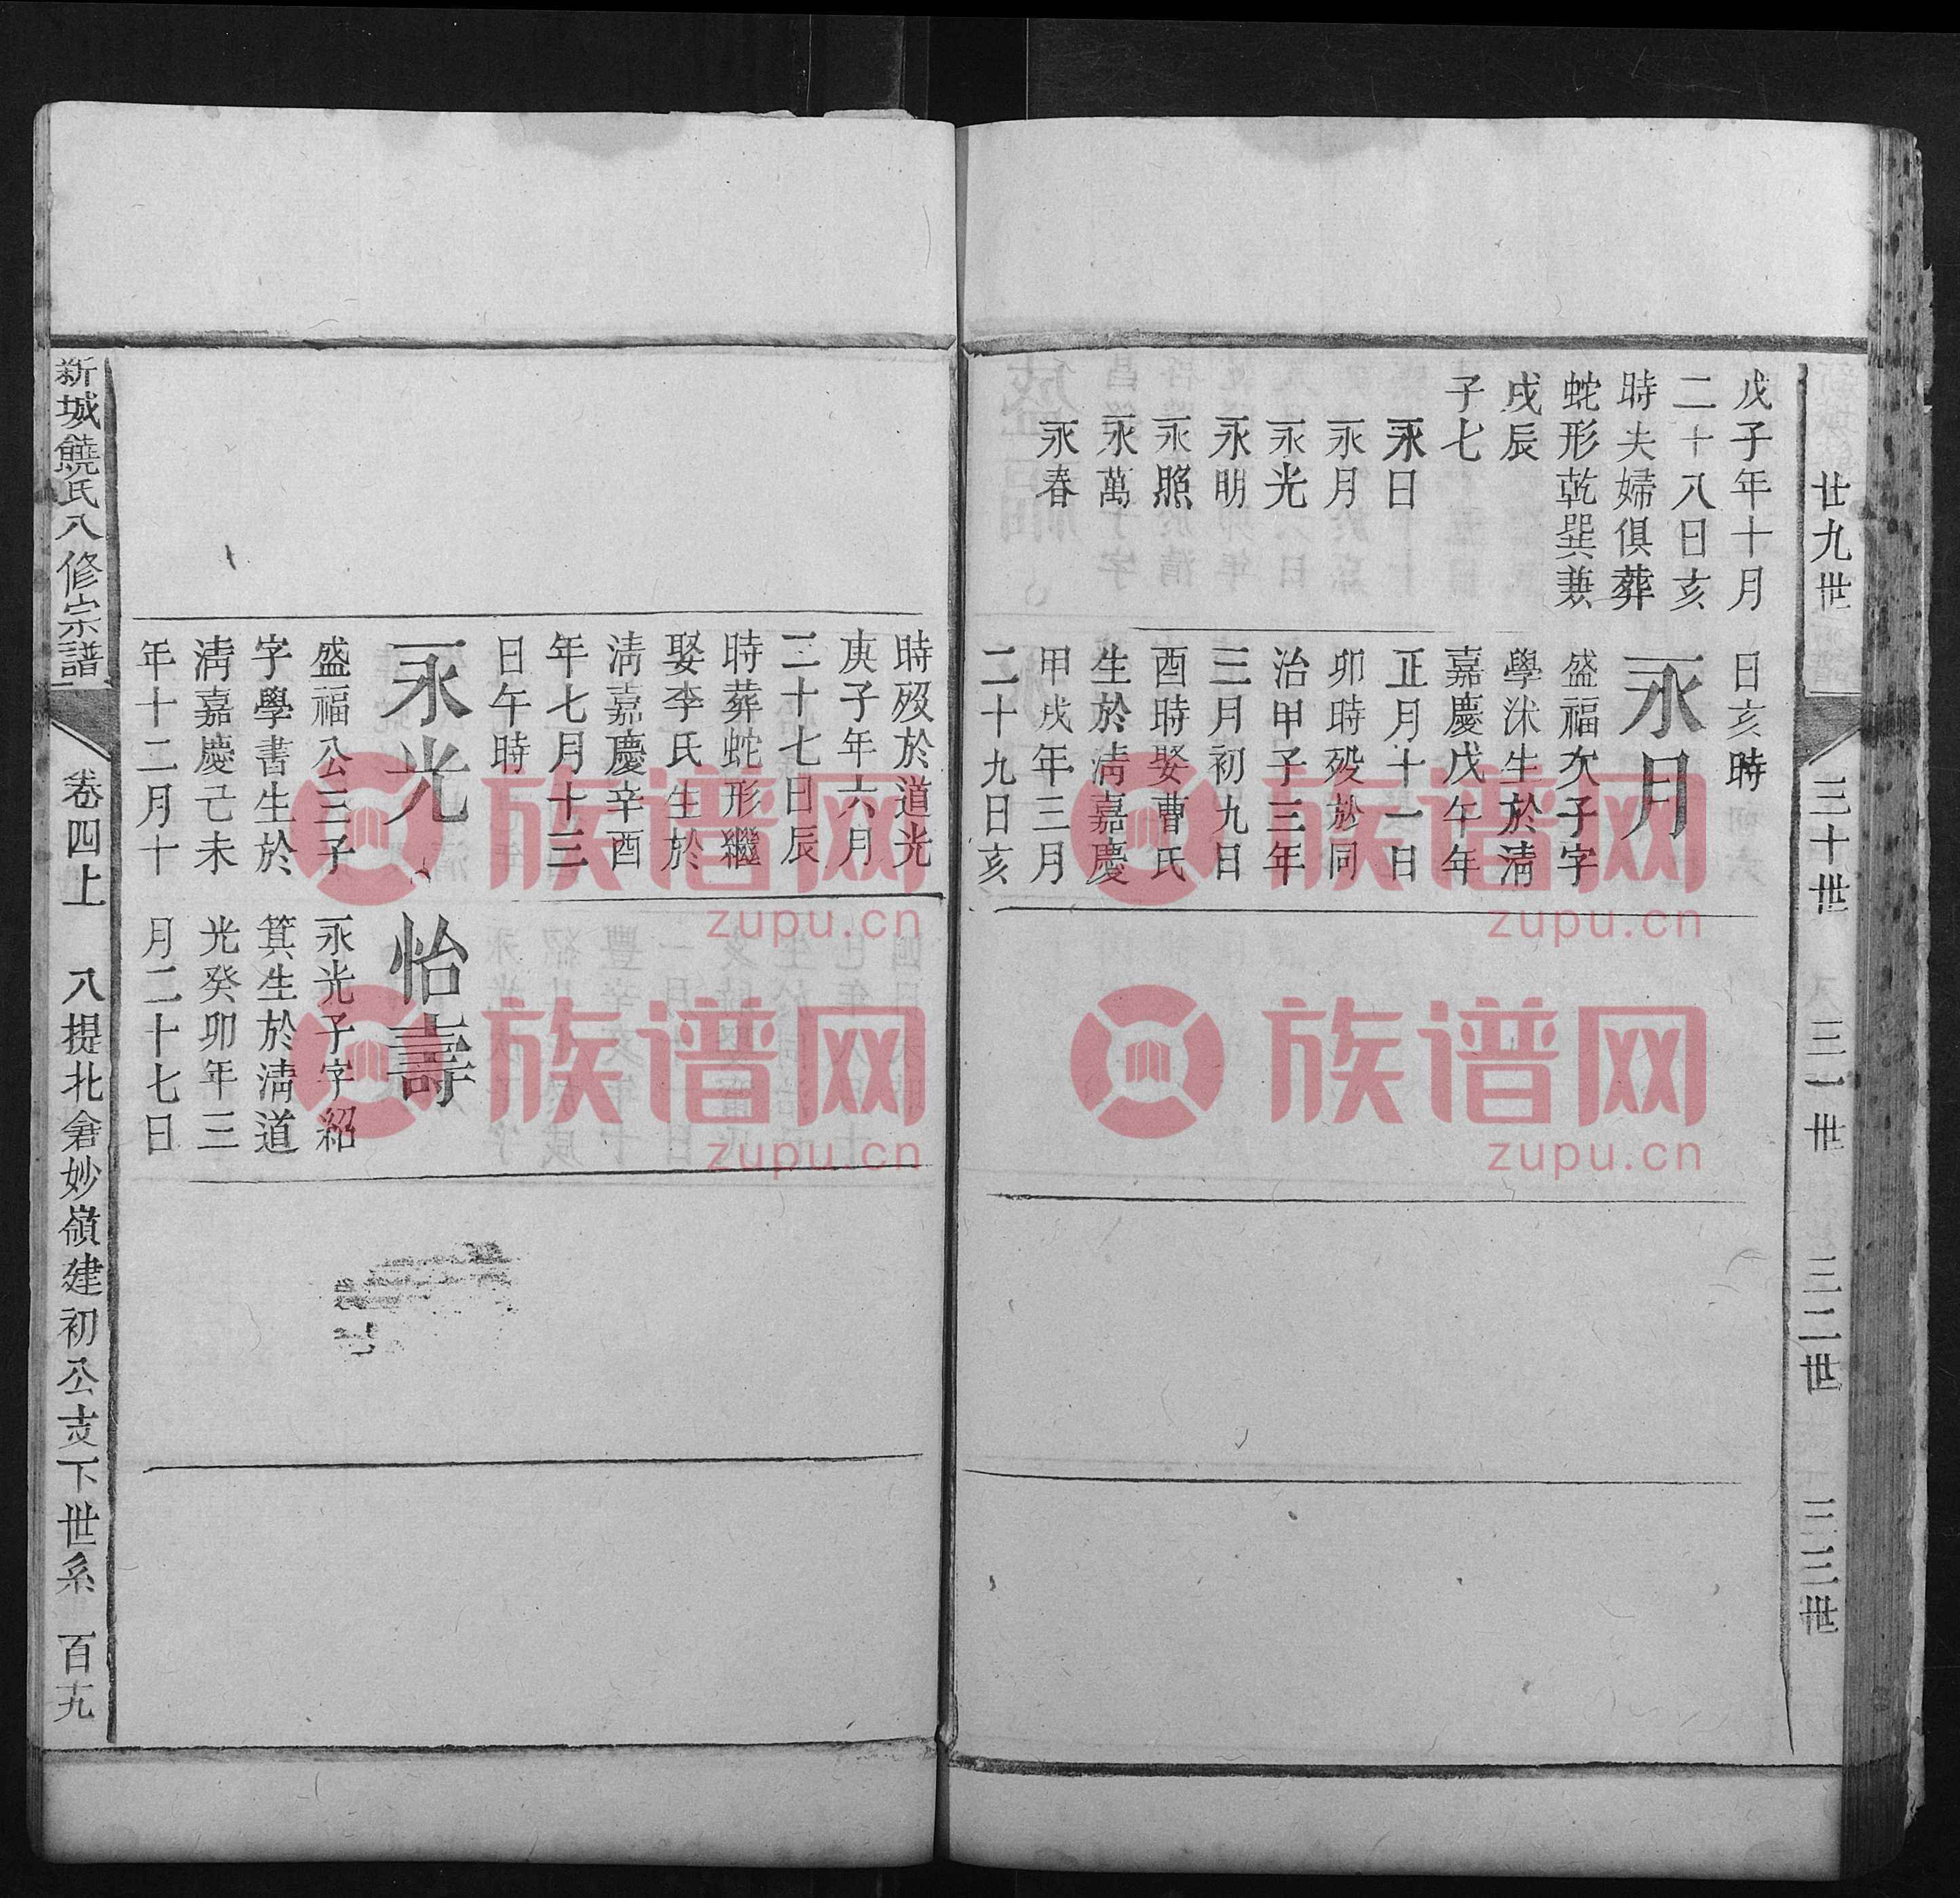 廿九世
三十世
三一世
三二世
三三世
戊子年十月
二十八日亥
時夫婦俱葬
蛇形乾巽兼
戌辰
子七
永日
永月
永光
永明
永照
永萬
永春
日亥時
永月
盛福次子字
學沭生於淸
嘉慶戊午年
正月十一日
卯時殁於同
治甲子三年
三月初九日
酉時娶曹氏
生於淸嘉慶
甲戌年三月
二十九日亥
時殁於道光
庚子年六月
二十七日辰
時葬蛇形繼
娶李氏生於
淸嘉慶辛酉
年七月十三
日午時
永光
盛福公三子
字學書生於
淸嘉慶己未
年十二月十
怡壽
永光子字紹
箕生於淸道
光癸卯年三
月二十七日
新城饒氏八修宗譜
卷四上
八提北倉妙嶺建初公支下世系
百九
族谱网
zupu.cn
族谱网
zupu.cn
族谱网
zupu.cn
族谱网
zupu.cn